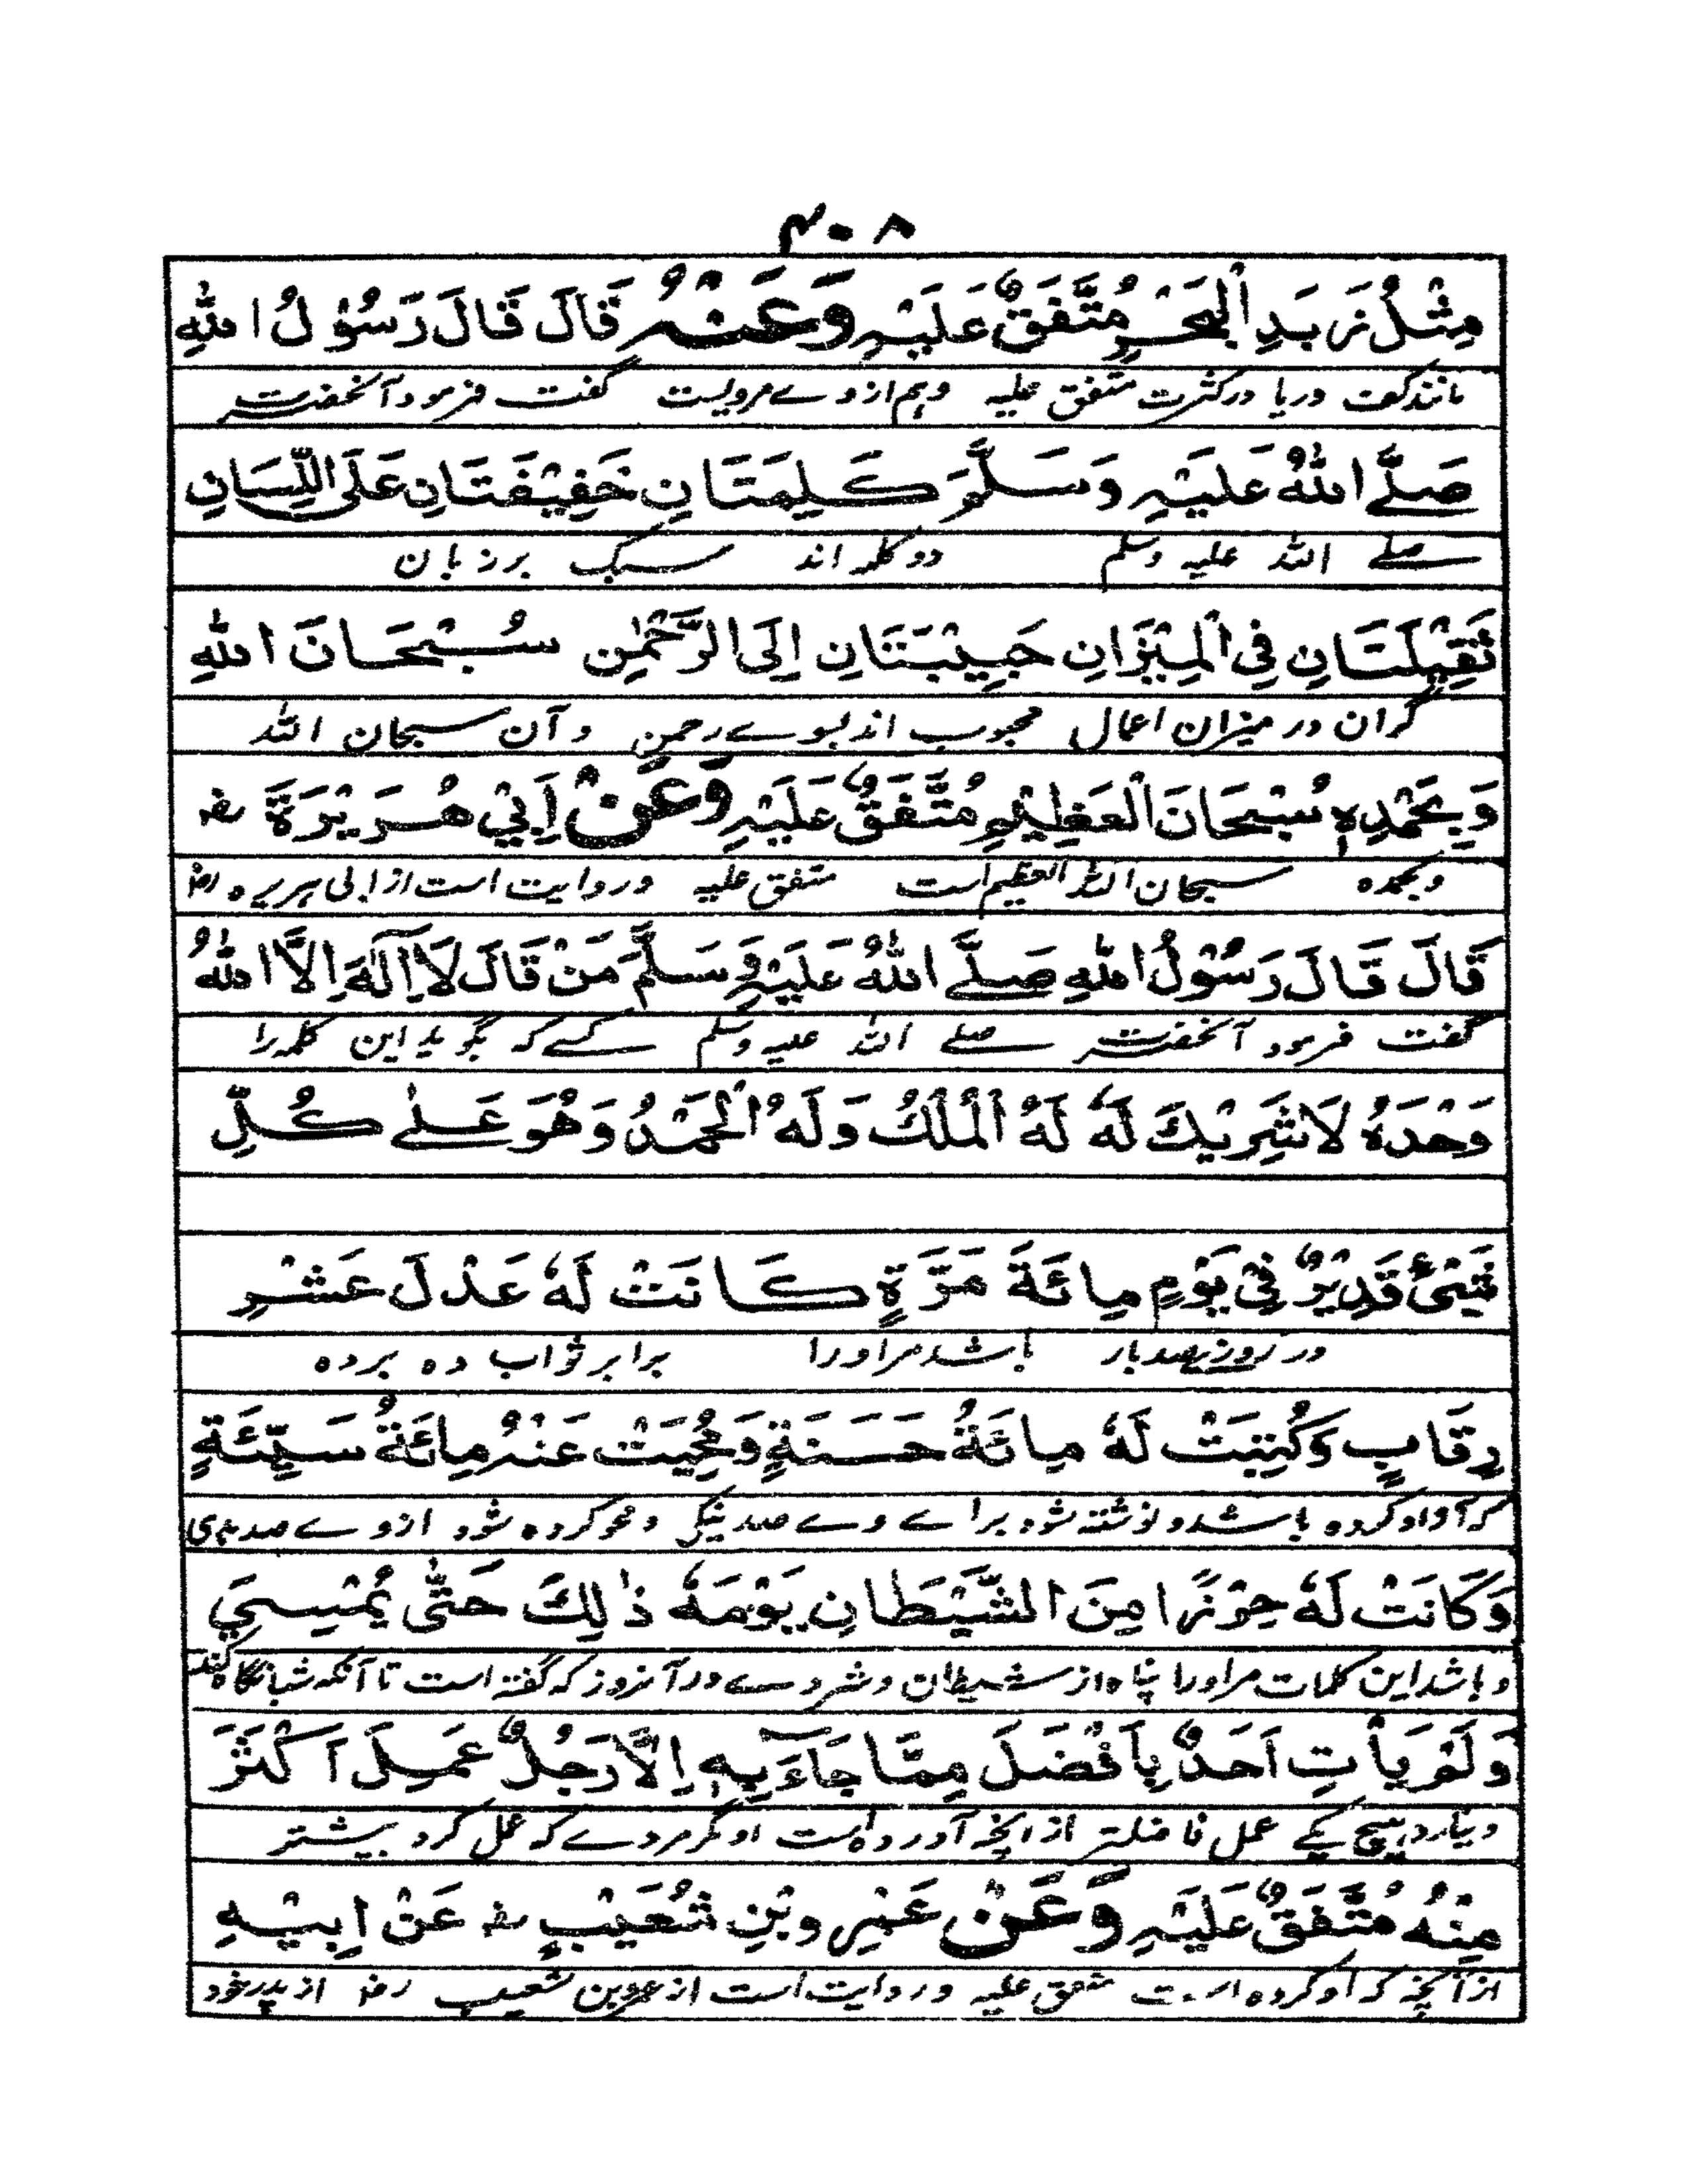 ۴۰۸
مِثْلُ زَبَدِ الْبَحْرِ مُتَّفَقٌ عَلَيْهِ وَعَنْهُ قَالَ قَالَ رَسُوْلُ اللّٰهِ
مانند کف دریا در کثرت متفق علیه و هم از وے مرویست گفت فرمود آنحضرت
صَلَّے اللّٰهُ عَلَيْهِ وَسَلَّمَ كَلِمَتَانِ خَفِيْفَتَانِ عَلَى اللِّسَانِ
صلے الله علیه وسلم دو کلمه اند سبک بر زبان
ثَقِيْلَتَانِ فِي الْمِيْزَانِ حَبِيْبَتَانِ اِلَى الرَّحْمٰنِ سُبْحَانَ اللّٰهِ
گران در میزان اعمال محبوب اند بسوے رحمن و آن سبحان الله
وَبِحَمْدِهٖ سُبْحَانَ الْعَظِيْمِ مُتَّفَقٌ عَلَيْهِ وَعَنْ اَبِيْ هُرَيْرَةَ رض
و بحمده سبحان الله العظیم است متفق علیه و روایت است از ابی هریره رض
قَالَ قَالَ رَسُوْلُ اللّٰهِ صَلَّے اللّٰهُ عَلَيْهِ وَسَلَّمَ مَنْ قَالَ لَا اِلٰهَ اِلَّا اللّٰهُ
گفت فرمود آنحضرت صلے الله علیه وسلم کسے که بگوید این کلمه را
وَحْدَهٗ لَا شَرِيْكَ لَهٗ لَهُ الْمُلْكُ وَلَهُ الْحَمْدُ وَهُوَ عَلٰے كُلِّ
شَيْئٍ قَدِيْرٌ فِيْ يَوْمٍ مِائَةَ مَرَّةٍ كَانَتْ لَهٗ عَدْلَ عَشْرِ
در روزے صد بار باشد مر او را برابر ثواب ده برده
رِقَابٍ وَكُتِبَتْ لَهٗ مِائَةُ حَسَنَةٍ وَمُحِيَتْ عَنْهُ مِائَةُ سَيِّئَةٍ
که آزاد کرده باشد و نوشته شود براے وے صد نیکی و محو کرده شود از وے صد بدی
وَكَانَتْ لَهٗ حِرْزًا مِنَ الشَّيْطَانِ يَوْمَهٗ ذٰلِكَ حَتّٰى يُمْسِيَ
و باشد این کلمات مر او را پناه از شیطان و شر وے در آنروز که گفته است تا آنکه شبانگاه کند
وَلَمْ يَأْتِ اَحَدٌ بِاَفْضَلَ مِمَّا جَآءَ بِهٖ اِلَّا رَجُلٌ عَمِلَ اَكْثَرَ
و نیارد هیچ یکے عمل فاضلتر از آنچه آورده است او مگر مردے که عمل کرد بیشتر
مِنْهُ مُتَّفَقٌ عَلَيْهِ وَعَنْ عَمْرِو بْنِ شُعَيْبٍ رض عَنْ اَبِيْهِ
از آنچه که او کرده است متفق علیه و روایت است از عمرو بن شعیب رض از پدر خود